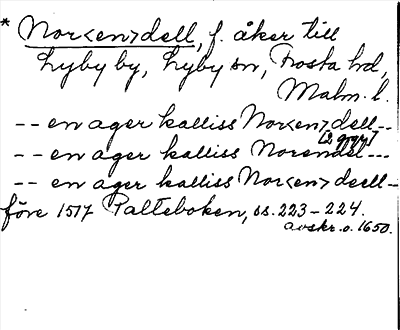 * Nor<en>dell, f. åker till
Lyby by, Lyby sn, Frosta hd,
Malm. l.
-- en ager kalliss Nor<en>dell --
[2 ggr]
-- en ager kalliss Norendel ---
-- en ager kalliss Nor<en>deell --
före 1517 Palteboken, ss. 223-224.
avskr. o. 1650.